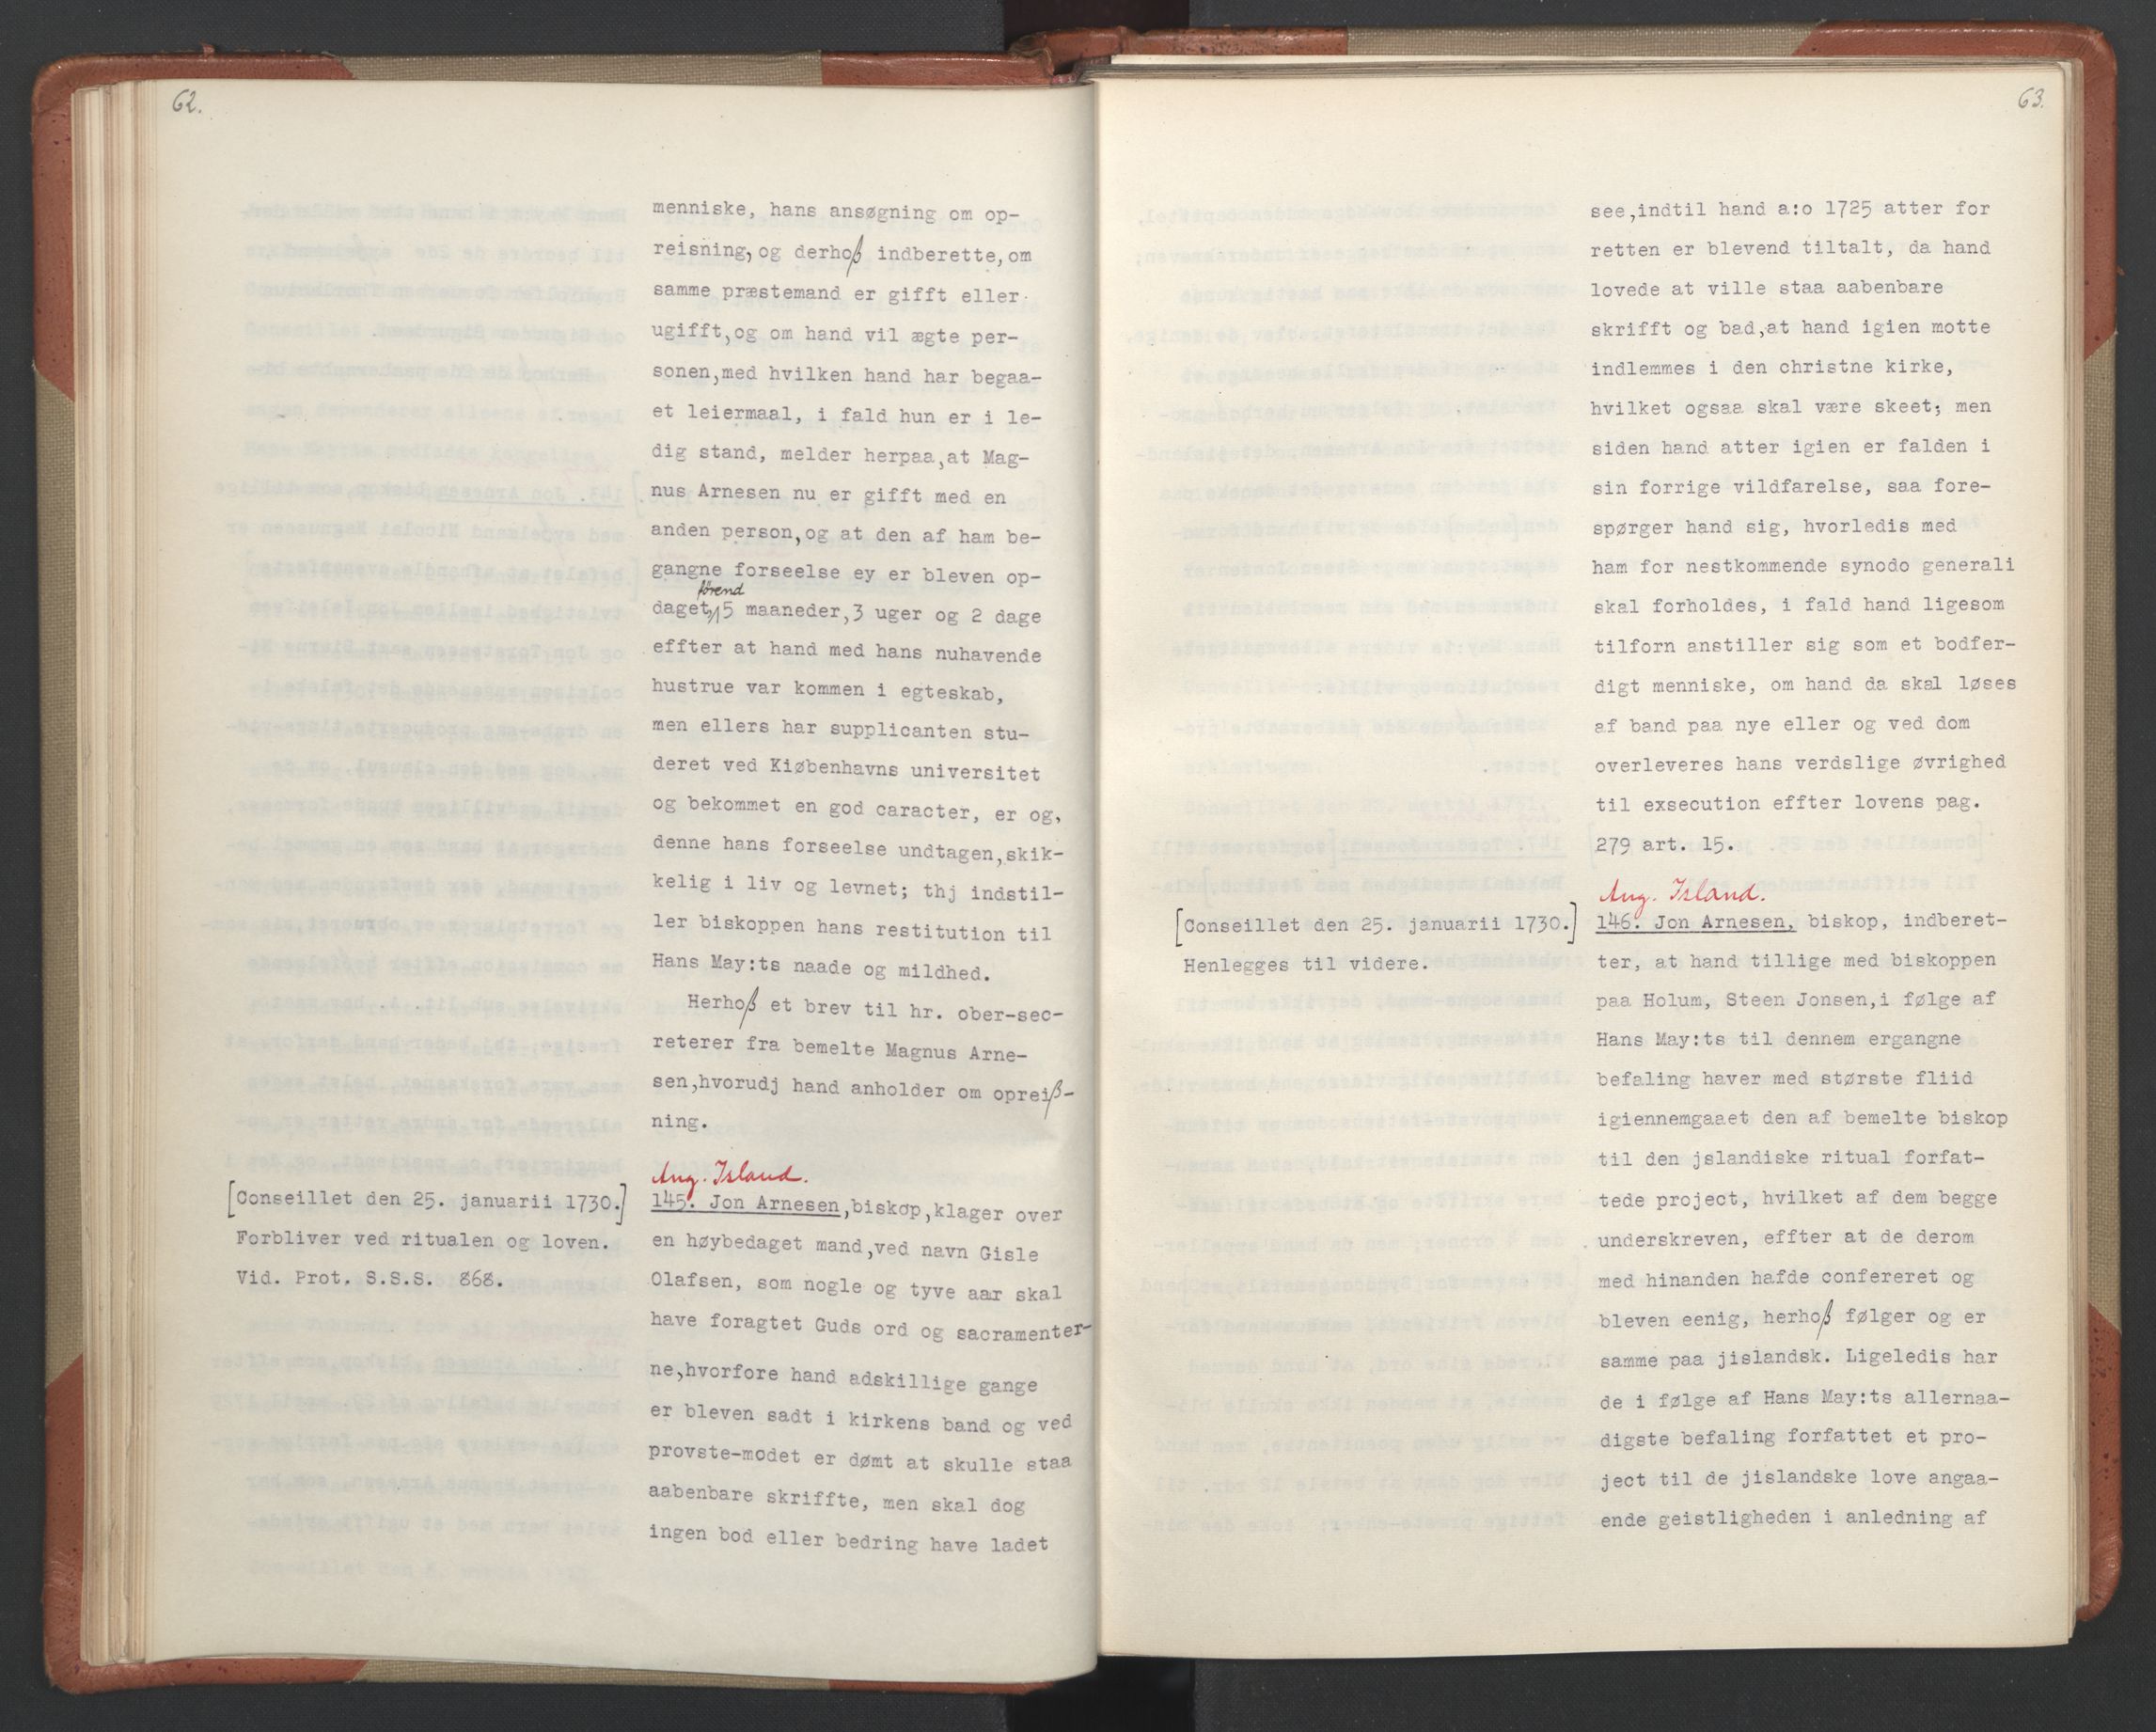 62.
menniske, hans ansøgning om op-
reisning, og derhoß indberette, om
samme præstemand er gifft eller
ugifft, og om hand vil ægte per-
sonen, med hvilken hand har begaa-
et leiermaal, i fald hun er i le-
dig stand, melder herpaa, at Mag-
nus Arnesen nu er gifft med en
anden person, og at den af ham be-
gangne forseelse ey er bleven op-
førend
daget, 5 maaneder, 3 uger og 2 dage
effter at hand med hans nuhavende
hustrue var kommen i egteskab,
men ellers har supplicanten stu-
deret ved Kiøbenhavns universitet
og bekommet en god caracter, er og,
denne hans forseelse undtagen, skik-
kelig i liv og levnet; thj indstil-
ler biskoppen hans restitution til
Hans May:ts naade og mildhed.
Herhoß et brev til hr. ober-sec-
reterer fra bemelte Magnus Arne-
sen, hvorudj hand anholder om opreiß-
ning.
[Conseillet den 25. januarii 1730.]
Forbliver ved ritualen og loven.
Vid. Prot. S.S.S. 868.
Ang. Island.
145. Jon Arnesen, biskop, klager over
en høybedaget mand, ved navn Gisle
Olafsen, som nogle og tyve aar skal
have foragtet Guds ord og sacramenter-
ne, hvorfore hand adskillige gange
er bleven sadt i kirkens band og ved
provste-modet er dømt at skulle staa
aabenbare skriffte, men skal dog
ingen bod eller bedring have ladet
63.
see, indtil hand a:o 1725 atter for
retten er blevend tiltalt, da hand
lovede at ville staa aabenbare
skrifft og bad, at hand igien motte
indlemmes i den christne kirke,
hvilket ogsaa skal være skeet; men
siden hand atter igien er falden i
sin forrige vildfarelse, saa fore-
spørger hand sig, hvorledis med
ham for nestkommende synodo generali
skal forholdes, i fald hand ligesom
tilforn anstiller sig som et bodfer-
digt menniske, om hand da skal løses
af band paa nye eller og ved dom
overleveres hans verdslige øvrighed
til exsecution effter lovens pag.
279 art. 15.
[Conseillet den 25. januarii 1730.]
Henlegges til videre.
Ang. Island.
146. Jon Arnesen, biskop, indberet-
ter, at hand tillige med biskoppen
paa Holum, Steen Jonsen, i følge af
Hans May:ts til dennem ergangne
befaling haver med største fliid
igiennemgaaet den af bemelte biskop
til den jslandiske ritual forfat-
tede project, hvilket af dem begge
underskreven, effter at de derom
med hinanden hafde confereret og
bleven eenig, herhoß følger og er
samme paa jislandsk. Ligeledis har
de i følge af Hans May:ts allernaa-
digste befaling forfattet et pro-
ject til de jislandske love angaa-
ende geistligheden i anledning af